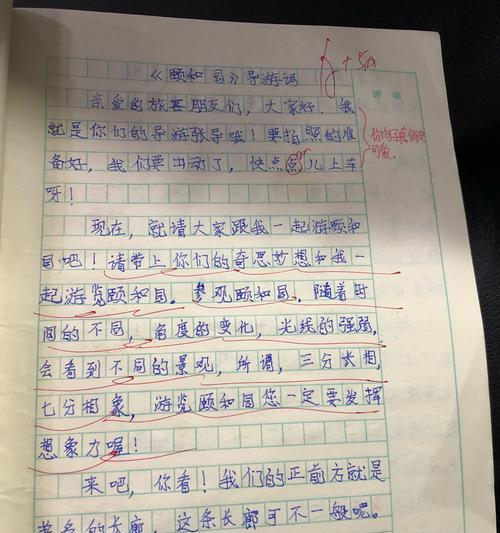 《颐和园》导游词
亲爱的旅客朋友们，大家好。我
就是你们的导游张导哦！要拍照的准
备好，我们要出动了，快点点儿上车
呀！
现在，就请大家跟我一起游颐和
园吧！请带上你们的奇思妙想和我一
起游览颐和园。参观颐和园，随着时
间的不同，角度的变化，光线的强弱，
会看到不同的景观，所谓，三分长相，
七分想象，游览颐和园您一定要发挥
想象力喔！
来吧，你看！我们的正前方就是
著名的长廊，这条长廊可不一般呢。
评语
可爱。